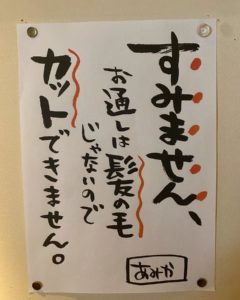 すみません、
お通しは髪の毛
じゃないので
カットできません。
あみか